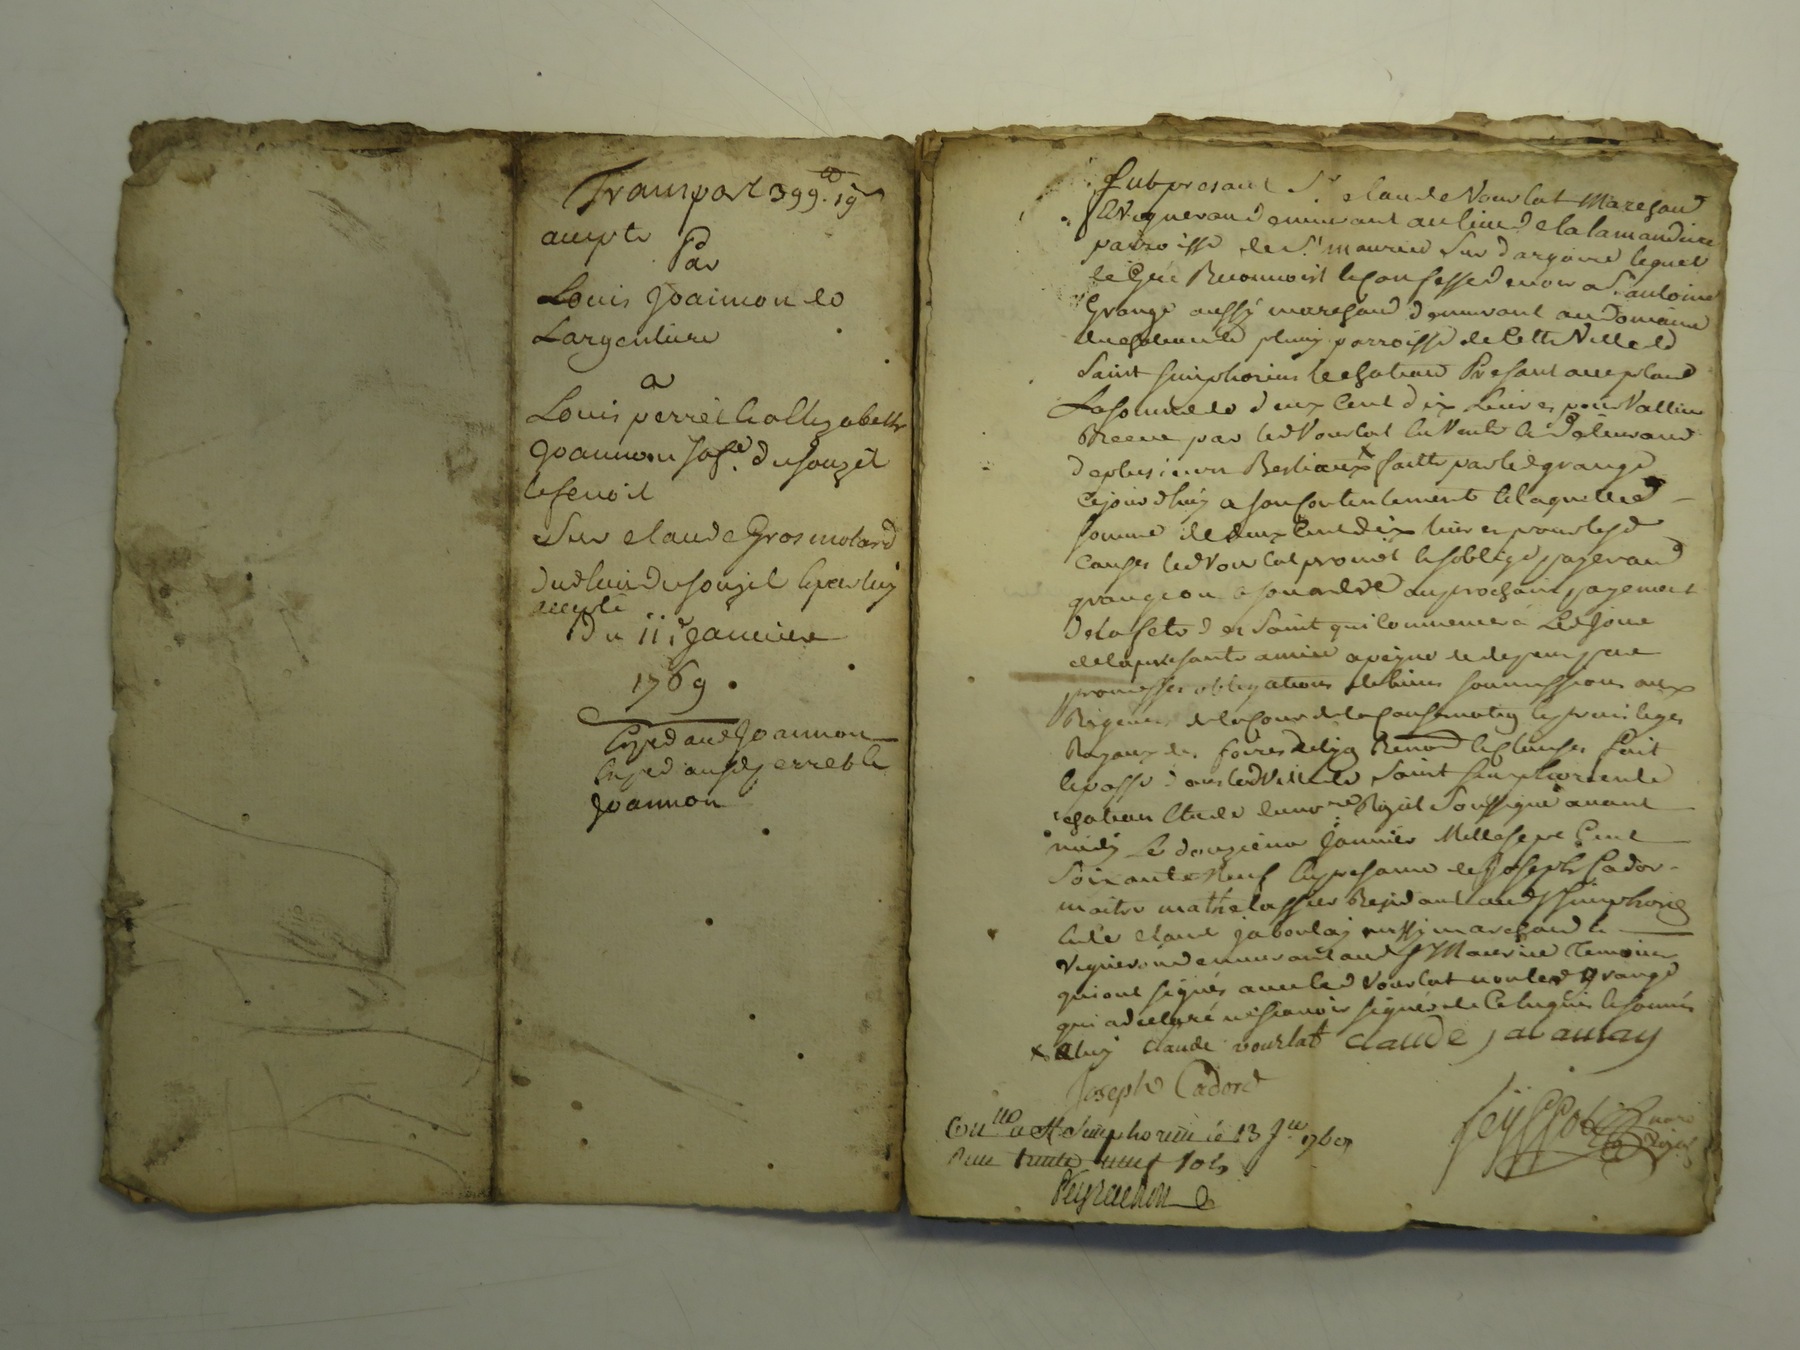 Transport 399tt 19s
accepté Par
Louis Joaimon de
Largentiere
a
Louis perret et allizabeth
Joannon sa fe. du souzel
le fenoil
Sur claude Grosmolard
dud lieu du souzel et par luy
accepté
Du 11e janvier
1769.
Exped aud Joannon
Exped ausd perret et
Joannon
fut present Sr claude Vourlat Marchand
et vigneron demeurant au lieu de la lamandiere
parroisse de St maurice sur dargoire lequel
de gré Reconnoist et confesse devoir a Sr antoine
Grange aussy marchand demeurant au domaine
parroisse de cette Ville de
Saint simphorien le chateau Présant acceptant
La somme de deux cent dix livres pour Valleur
Receue par led Vourlat en Vente et délivrance
de plusieurs Bestiaux x faitte par led grange
cejourdhuy a son contentement et laquelle d
somme de deux cent dix livres pour les d
causes led Vourlat promet et soblige payer aud
grange ou a son ordre au prochain payement
de la fete des Saint qui commencera Le d jour
de la presante année a peyne de depens par
promesses obligations de biens soumissions aux
Rigeurs de la cour de la conservation et privileges
Royaux des foires de lyon Renond et clauses fait
et passé dans lad Ville de Saint simphorien le
chateau Etude du nore Royal soussigné avant
midy Le douzieme Janvier Mille sept Cent
Soixante Neuf en presance de Joseph Cador
maitre mathelassier Residant aud St simphorien
et de claude jaboulay aussy marchand et
vigneron demeurant aud St Maurice Temoins
qui ont signés avec led Vourlat non led grange
qui a declaré ne sçavoir signer de ce enquis et sommés
x a luy claude vourlat claude jabaulay
Joseph Cadord
Conllé a St Simphorien le 13 Jer 1769
Reçu trente neuf sols
Peyrachon
nore
Royal